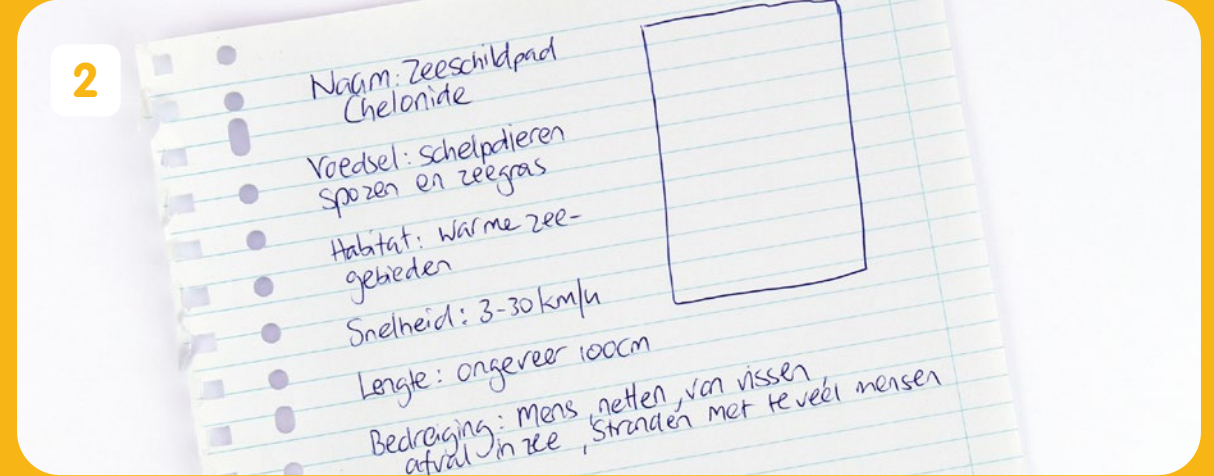 2
Naam: Zeeschildpad
Chelonide
Voedsel: schelpdieren
spozen en zeegras
Habitat: warme zee-
gebieden
Snelheid: 3-30 km/u
Lengte: ongeveer 100cm
Bedreiging: mens, netten, van vissen,
afval in zee, stranden met te veel mensen